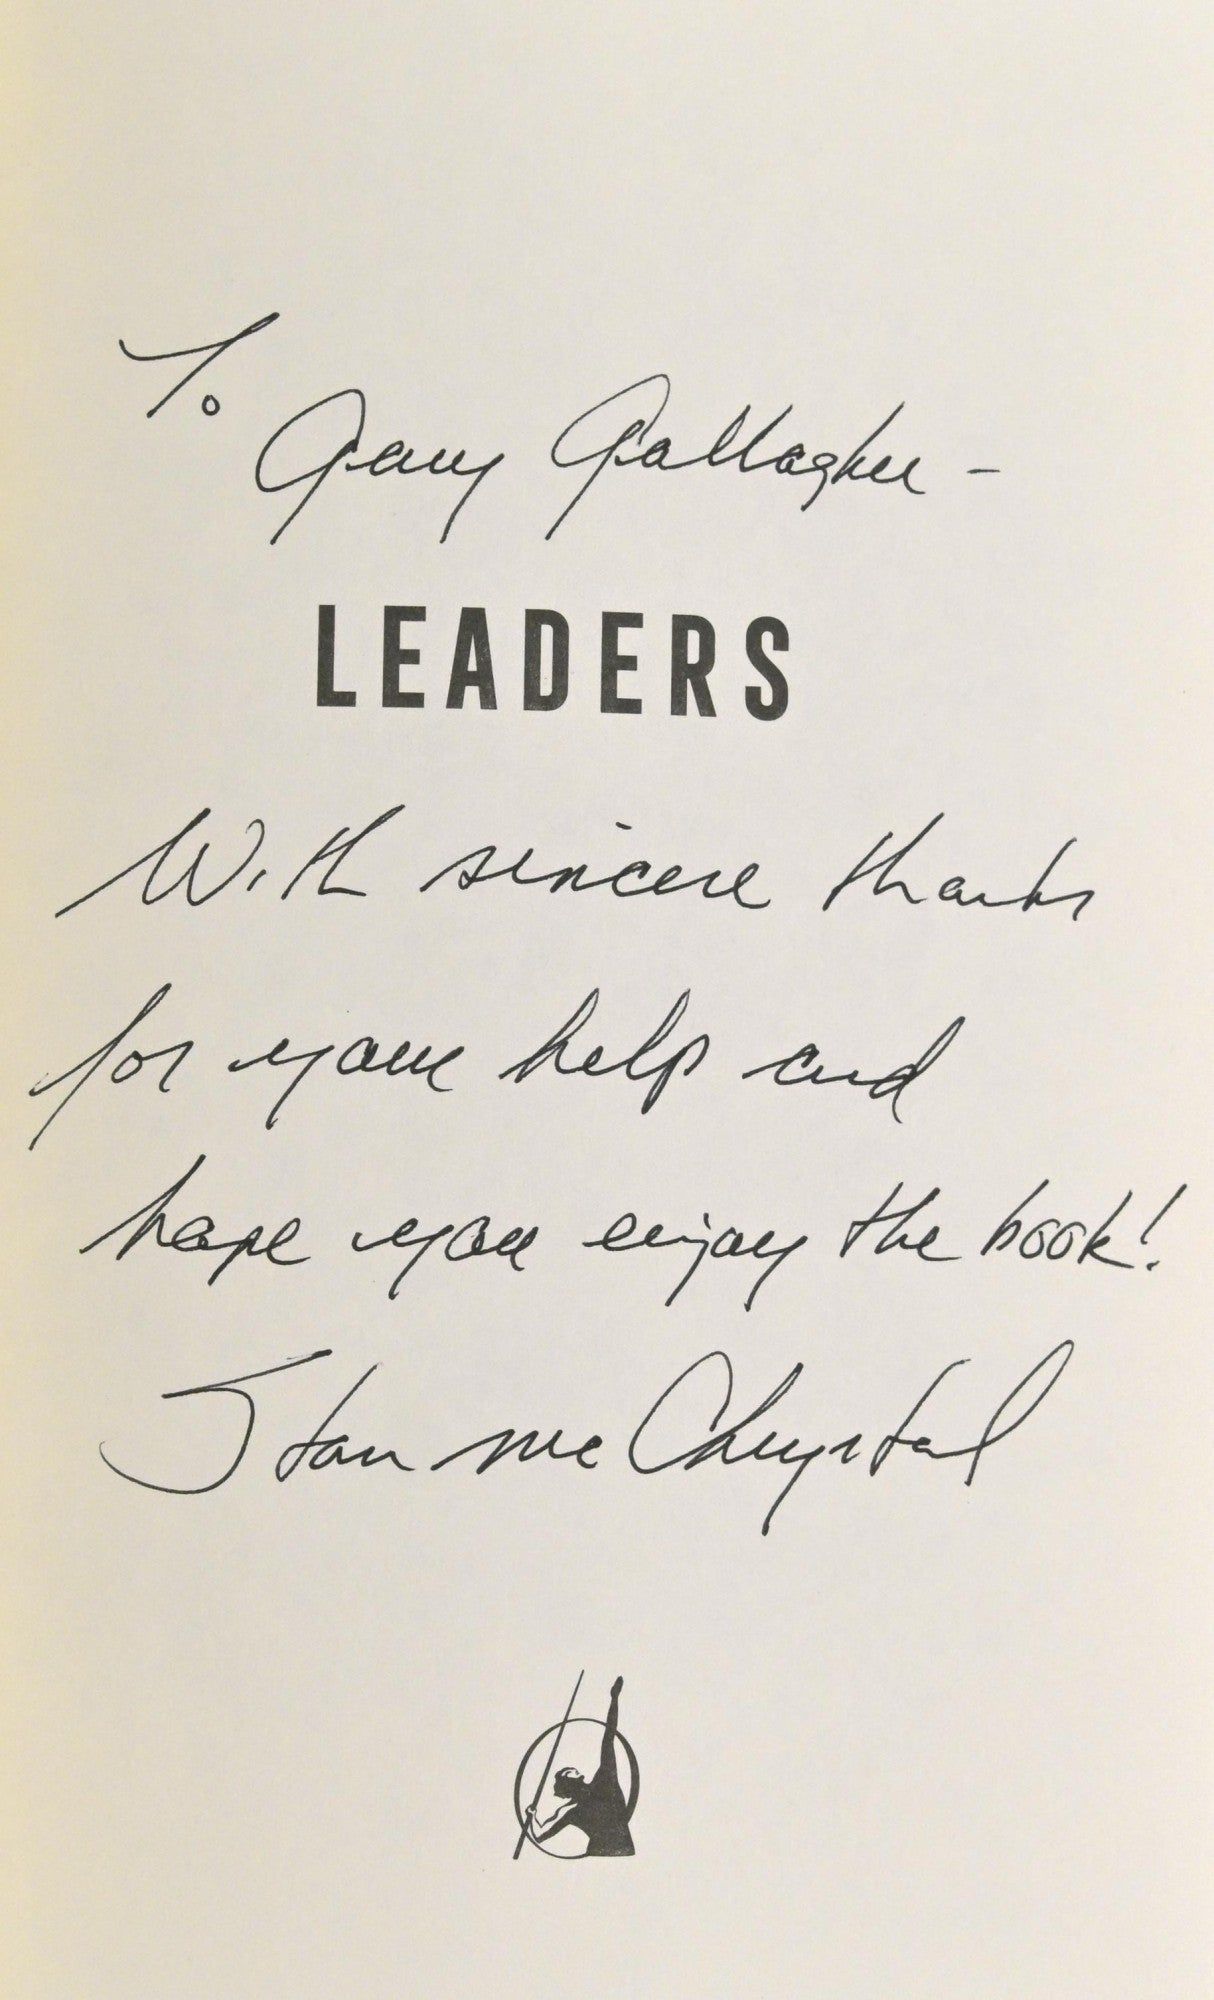 To
Gary Gallagher -
LEADERS
With sincere thanks
for your help and
hope you enjoy the book!
Stan McChrystal